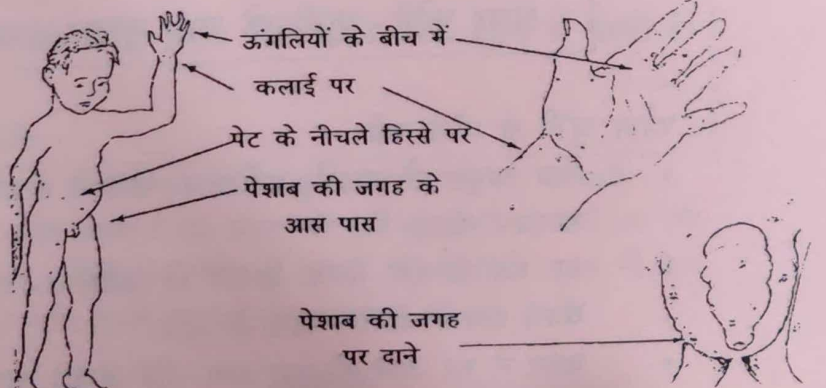 ऊंगलियों के बीच में
कलाई पर
पेट के नीचले हिस्से पर
पेशाब की जगह के
आस पास
पेशाब की जगह
पर दाने